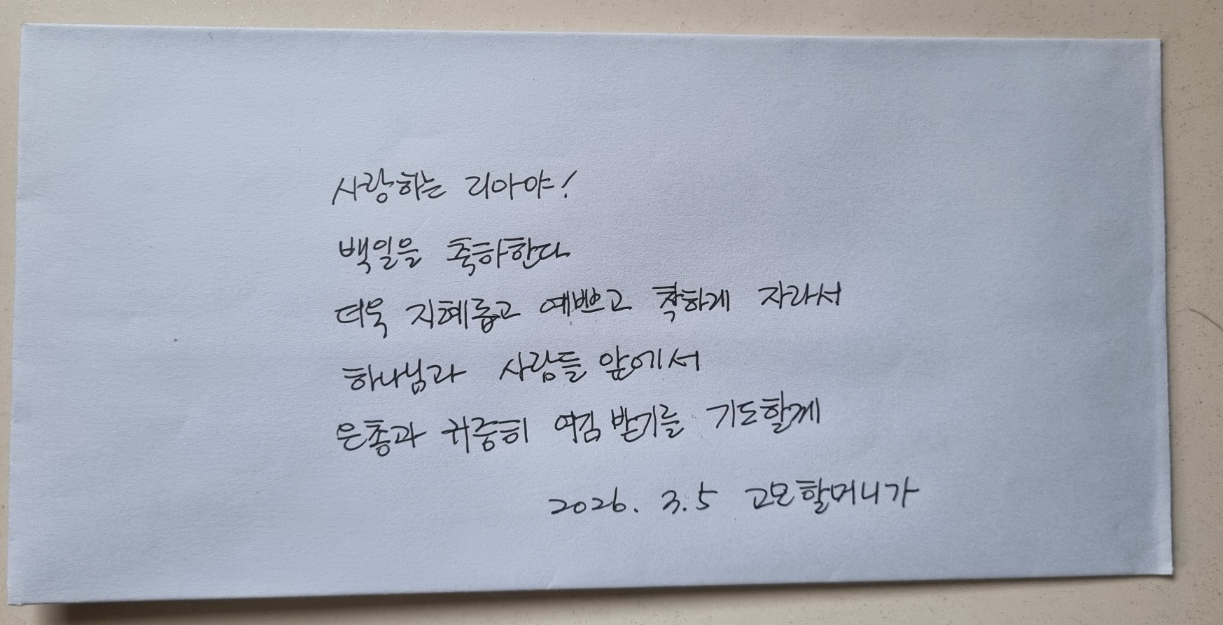 사랑하는 리아야!
백일을 축하한다
더욱 지혜롭고 예쁘고 착하게 자라서
하나님과 사람들 앞에서
은총과 귀중히 여김 받기를 기도할게
2026. 3.5 고모할머니가